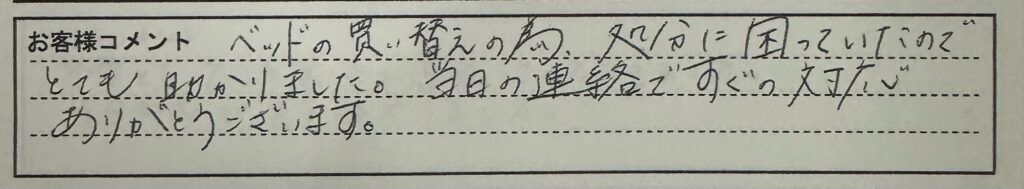 お客様コメント ベッドの買い替えの為、処分に困っていたので
とても助かりました。当日の連絡ですぐの対応
ありがとうございます。